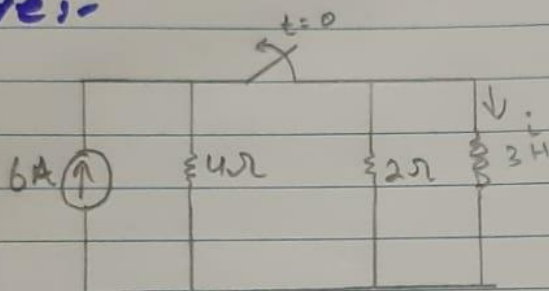 t=0
i
6A 4Ω 2Ω 3H